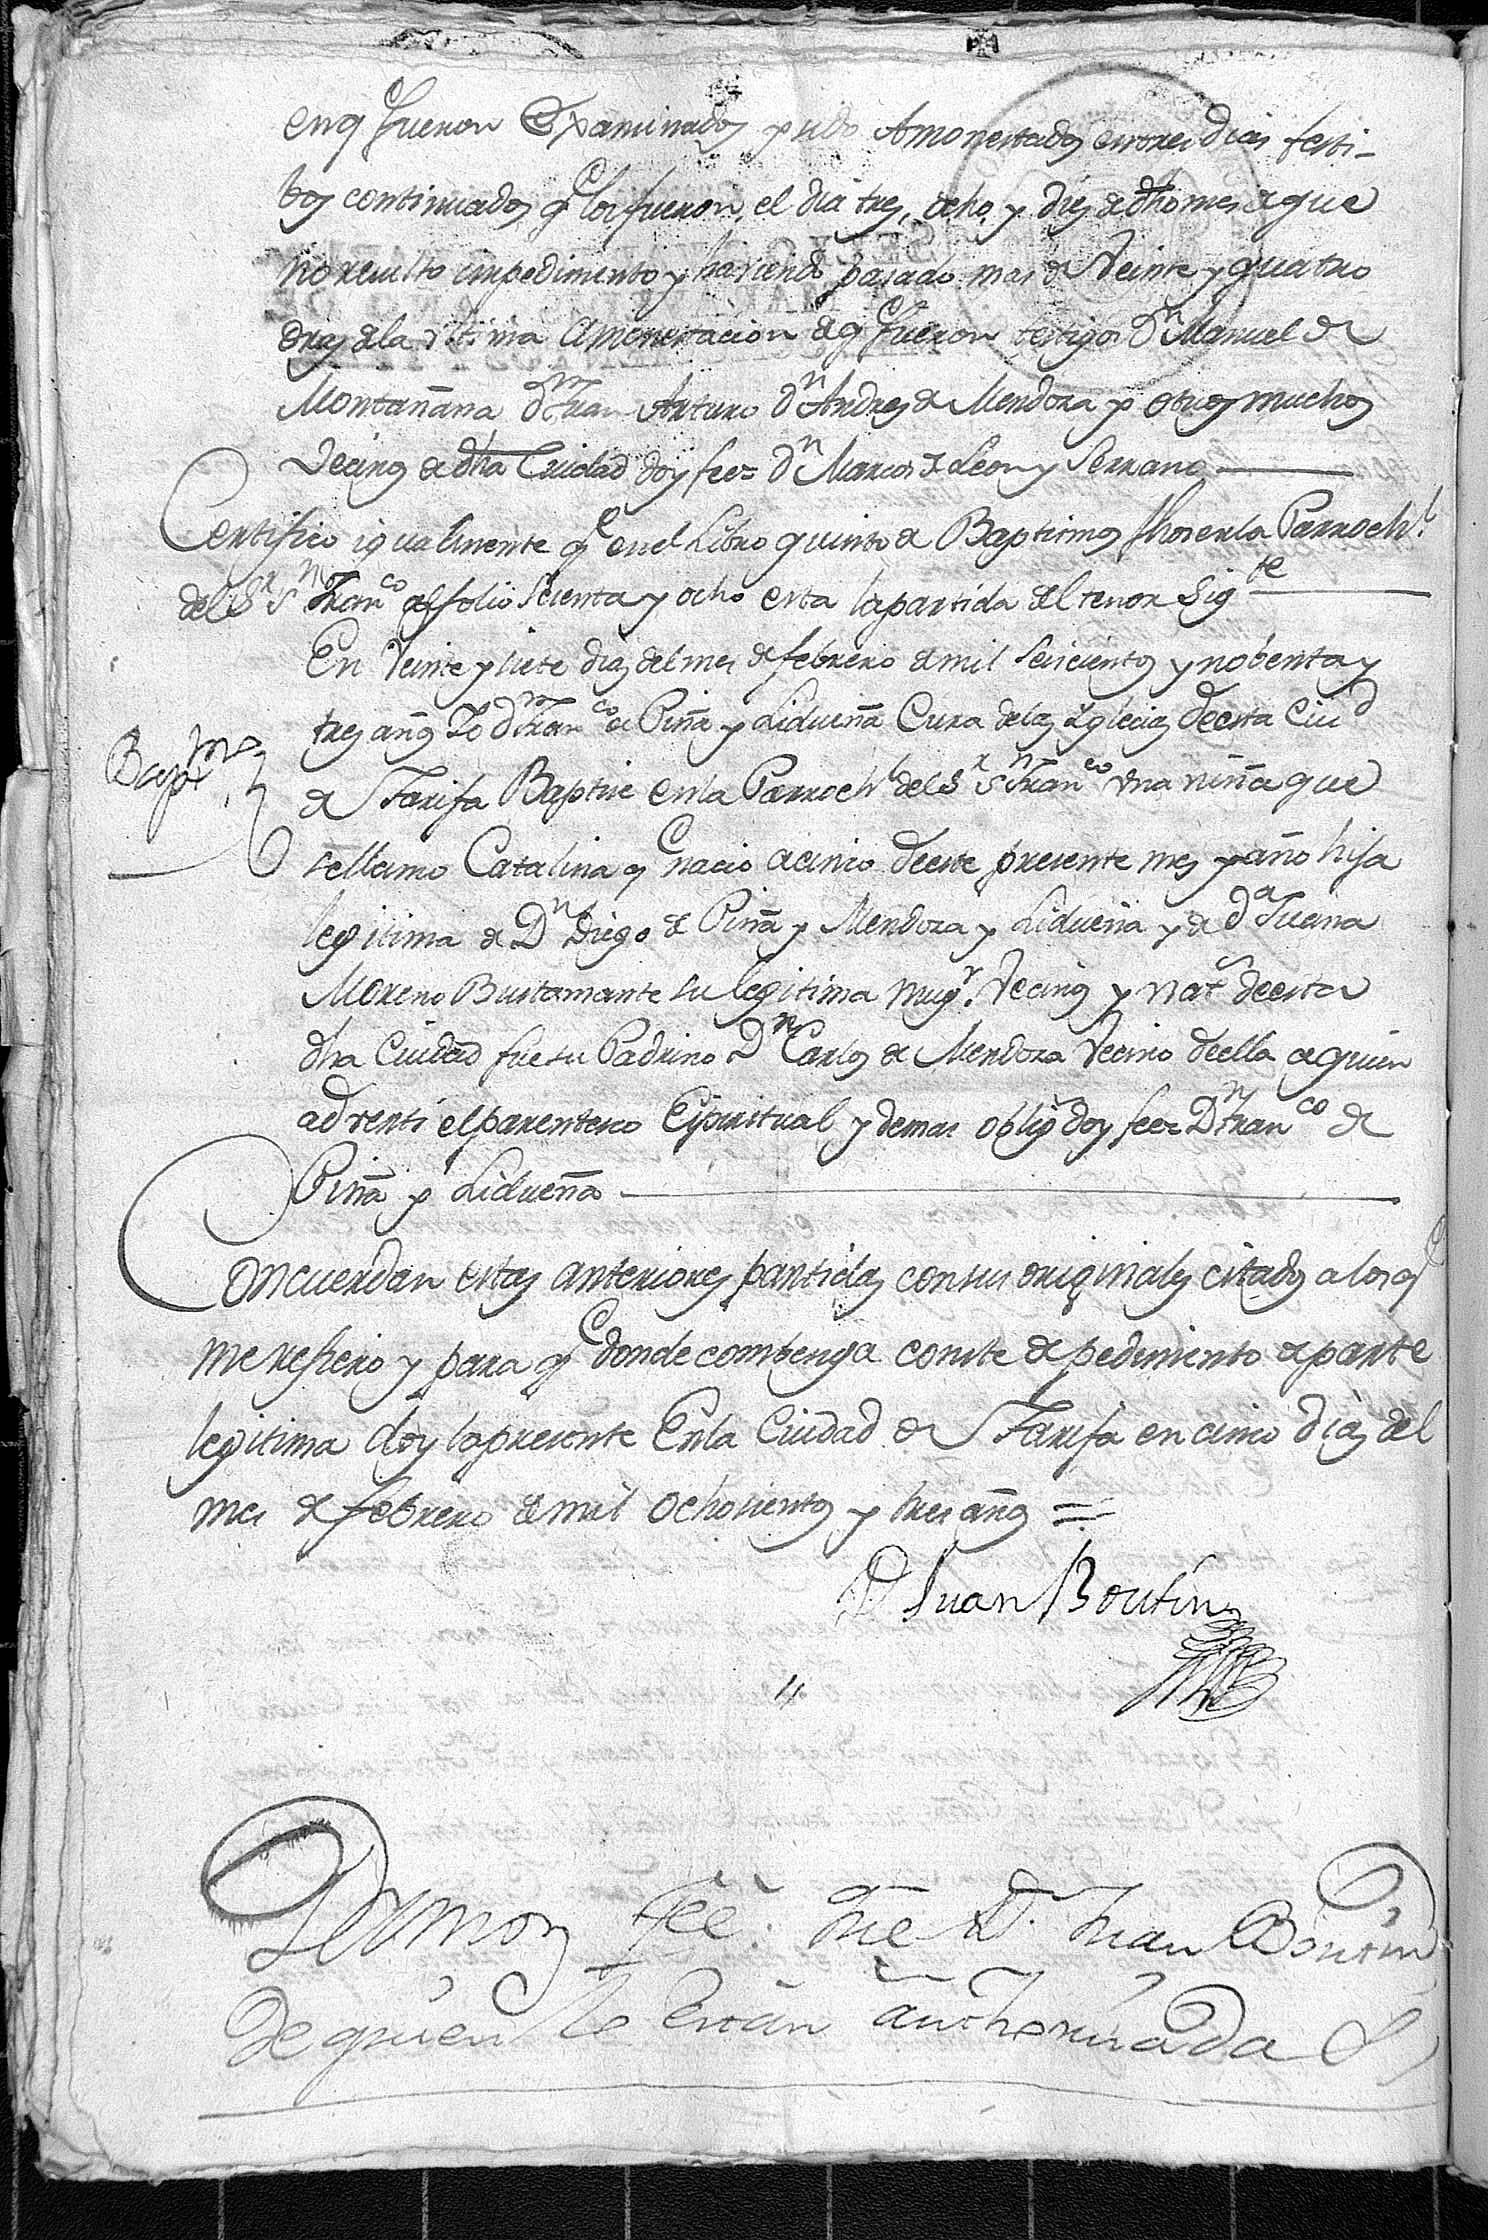 enq^e fueron Examinados y sido Amonestados en tres dias festi-
bos continuados q^e los fueron, el dia tres, ocho, y dies de dho mes de que
no resulto impedimento y haviendo pasado mas de Veinte y quatro
oras de la ultima Amonestacion de q^e fueron testigos D^n Manuel de
Montañana D^n Juan Arturo D^n Andres de Mendoza y otros muchos
Vecinos de dha Ciudad doy fee= D^n Marcos de Leon y Serrano
Certifico igualmente q^e en el Libro quinto de Baptismos fhos en la Parroch^l
del S^r S^n Fran^co al folio Secenta y ocho esta la partida del tenor Sig^te
En Veinte y siete dias del mes de febrero de mil Seiscientos y nobenta y
tres años Yo D^n Fran^co de Piña y Lidueña Cura de las Yglecias de esta Ciu^d
de Tarifa Baptise en la Parroch^l del S^r S^n Fran^co Una niña que
Bap^mo
se llamo Catalina q^e nacio a cinco de este presente mes y año hija
legitima de D^n Diego de Piña y Mendoza y Lidueña y de d^a Juana
Moreno Bustamante su legitima mug^r. Vecinos y nat^s de esta
dha Ciudad fue su Padrino D^n Carlos de Mendoza Vecino de ella a quien
adverti el parentesco Espiritual y demas oblig^s doy fee= D^n Fran^co de
Piña y Lidueña
Concuerdan estas anteriores partidas con sus originales citados a los q^e
me refiero y para q^e donde combenga conste de pedimento de parte
legitima doy la presente En la Ciudad de Tarifa en cinco dias del
mes de febrero de mil ochosientos y tres años =
D Juan Boutin
Damos fee: Que D. Juan Boutin
de quien